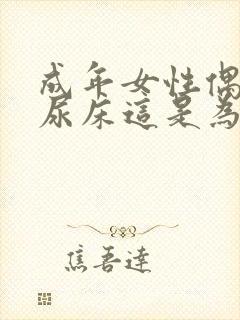 成年女性偶
尿床這是為
焦吾達